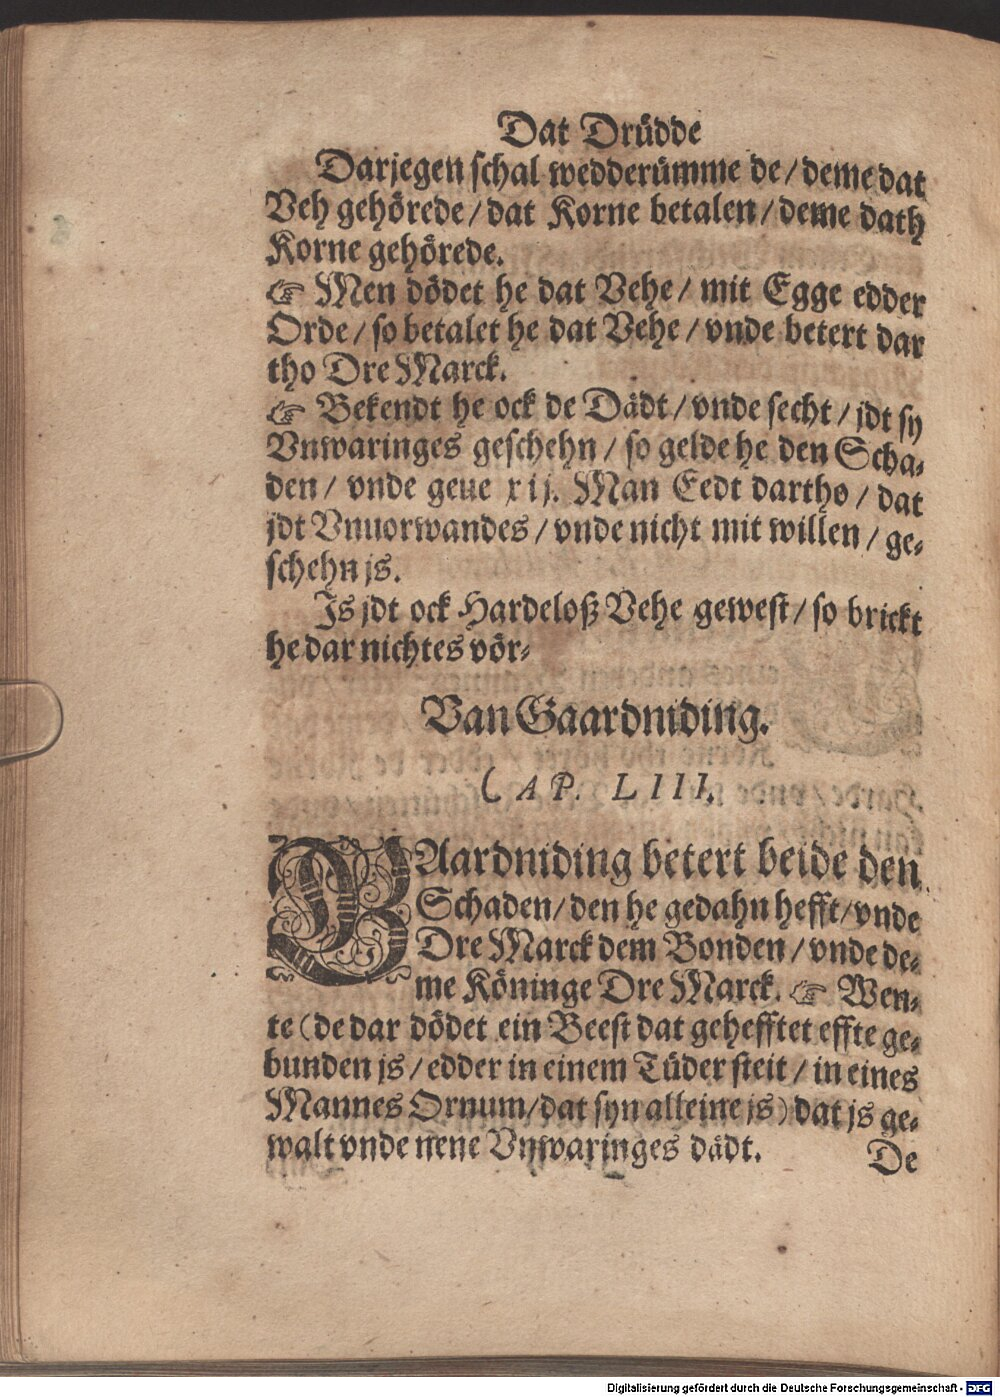 Dat Drüdde
Darjegen schal wedderümme de / deme dat
Veh gehörede / dat Korne betalen / deme dath
Korne gehörede.
☞ Men dödet he dat Vehe / mit Egge edder
Orde / so betalet he dat Vehe / vnde betert dar
tho Dre Marck.
☞ Bekendt he ock de Dädt / vnde secht / jdt sy
Vnwaringes geschehn / so gelde he den Scha⸗
den / vnde geue xij. Man Eedt dartho / dat
jdt Vnuorwandes / vnde nicht mit willen / ge⸗
schehn js.
Is jdt ock Hardeloß Vehe gewest / so brickt
he dar nichtes vör⸗
Van Gaardniding.
CAP. LIII.
GAardniding betert beide den
Schaden / den he gedahn hefft / vnde
Dre Marck dem Bonden / vnde de⸗
me Köninge Dre Marck. ☞ Wen⸗
te (de dar dödet ein Beest dat gehefftet effte ge⸗
bunden js / edder in einem Tüder steit / in eines
Mannes Ornum / dat syn alleine js) dat js ge⸗
walt vnde nene Vnwaringes dädt.
De
Digitalisierung gefördert durch die Deutsche Forschungsgemeinschaft - DFG